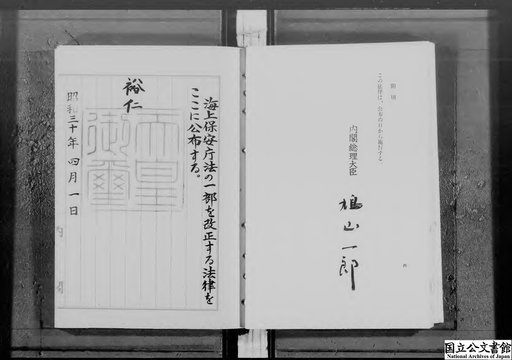 附則
この法律は、公布の日から施行する。
内閣総理大臣
鳩山一郎
海上保安庁法の一部を改正する法律を
ここに公布する。
裕仁
天皇御璽
昭和三十年四月一日
国立公文書館
National Archives of Japan